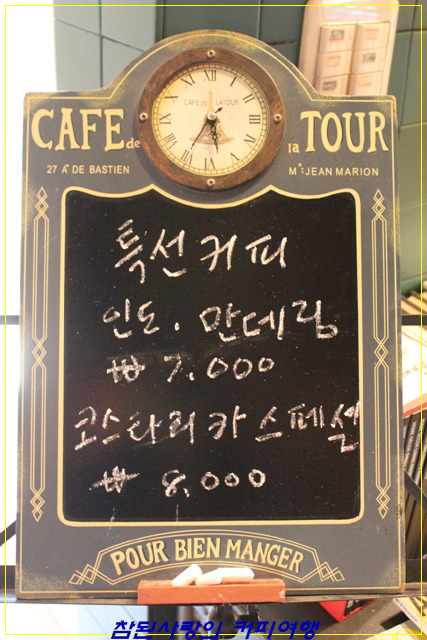 XII
CAFE de LA TOUR
CAFE de la TOUR
27 Aᵉ DE BASTIEN
Mᵉ: JEAN MARION
특선커피
인도. 만데링
₩ 7.000
코스타리카 스페셜
₩ 8,000
POUR BIEN MANGER
참된사랑의 커피여행